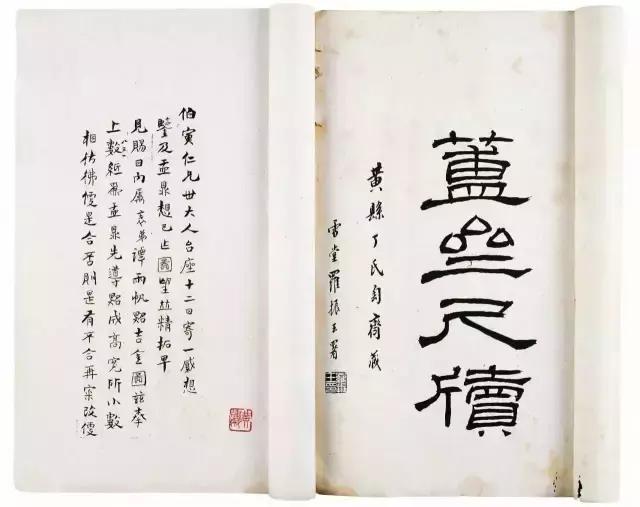 簠亝尺牘
黃縣丁氏匋齋藏
雪堂羅振玉署
伯寅仁兄世大人台座十二日寄一緘想
鑒及盂鼎想已上圖望並精拓早
見賜日內屬家弟譚雨帆點吉金圖茲奉
上數紙果盂鼎先導點成高寬所小數
相仿彿便是合否則是有不合再案改便